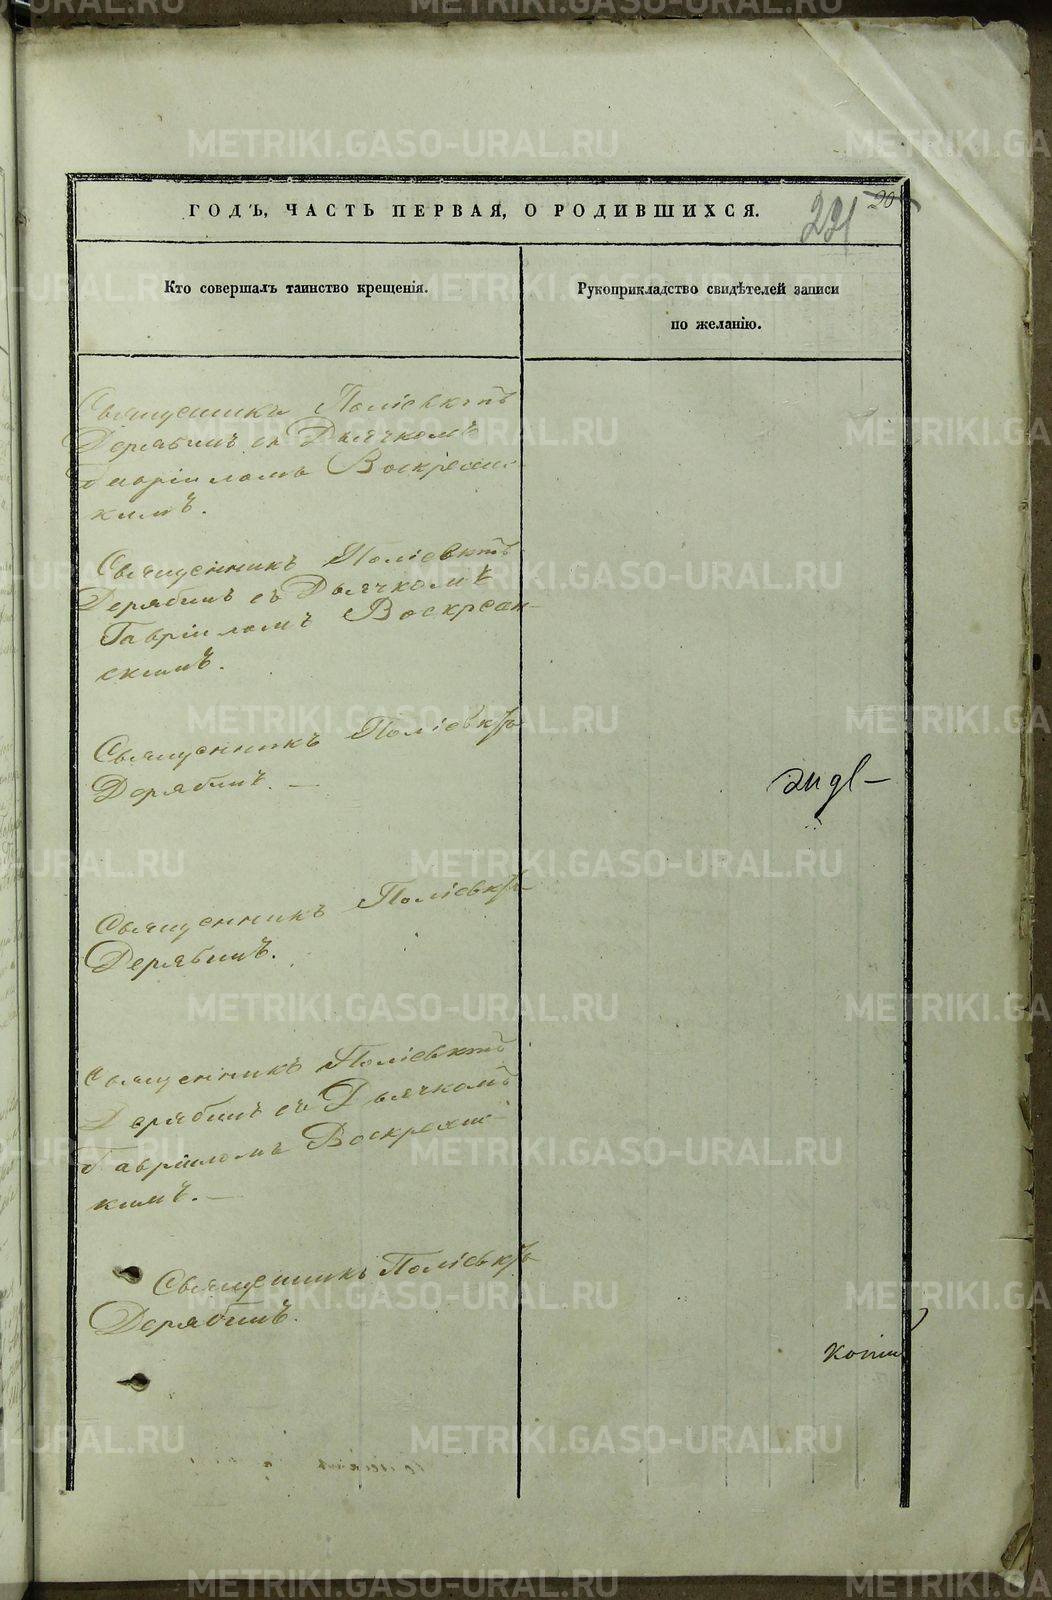 ГОДЪ, ЧАСТЬ ПЕРВАЯ, О РОДИВШИХСЯ.
221
20
Кто совершалъ таинство крещенія.
Рукоприкладство свидѣтелей записи
по желанію.
Священникъ Поліевктъ
Дерябинъ съ Дьячкомъ
Гавріиломъ Воскресен-
скимъ.
Священникъ Поліевктъ
Дерябинъ съ Дьячкомъ
Гавріиломъ Воскресен-
скимъ.
Священникъ Поліевктъ
Дерябинъ. —
Священникъ Поліевктъ
Дерябинъ.
Священникъ Поліевктъ
Дерябинъ съ Дьячкомъ
Гавріиломъ Воскресен-
скимъ. —
Священникъ Поліевктъ
Дерябинъ.
METRIKI.GASO-URAL.RU